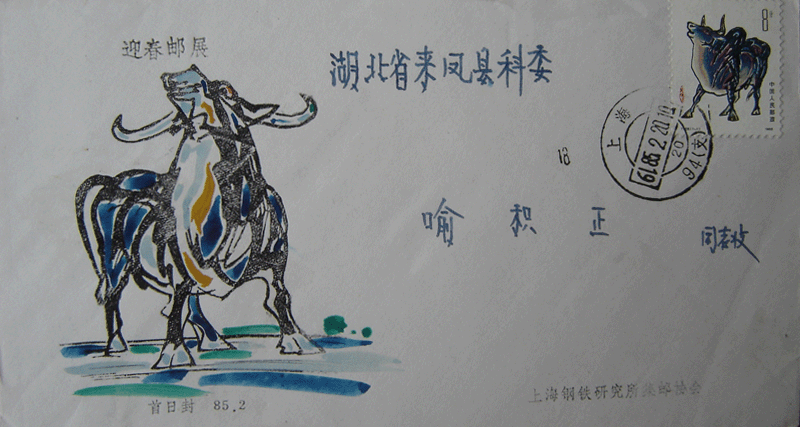 迎春邮展
湖北省来凤县科委
8分
中国人民邮政
上海
1985.2.20.19
94(支)
13
喻积正
同志收
首日封 85.2
上海钢铁研究所集邮协会